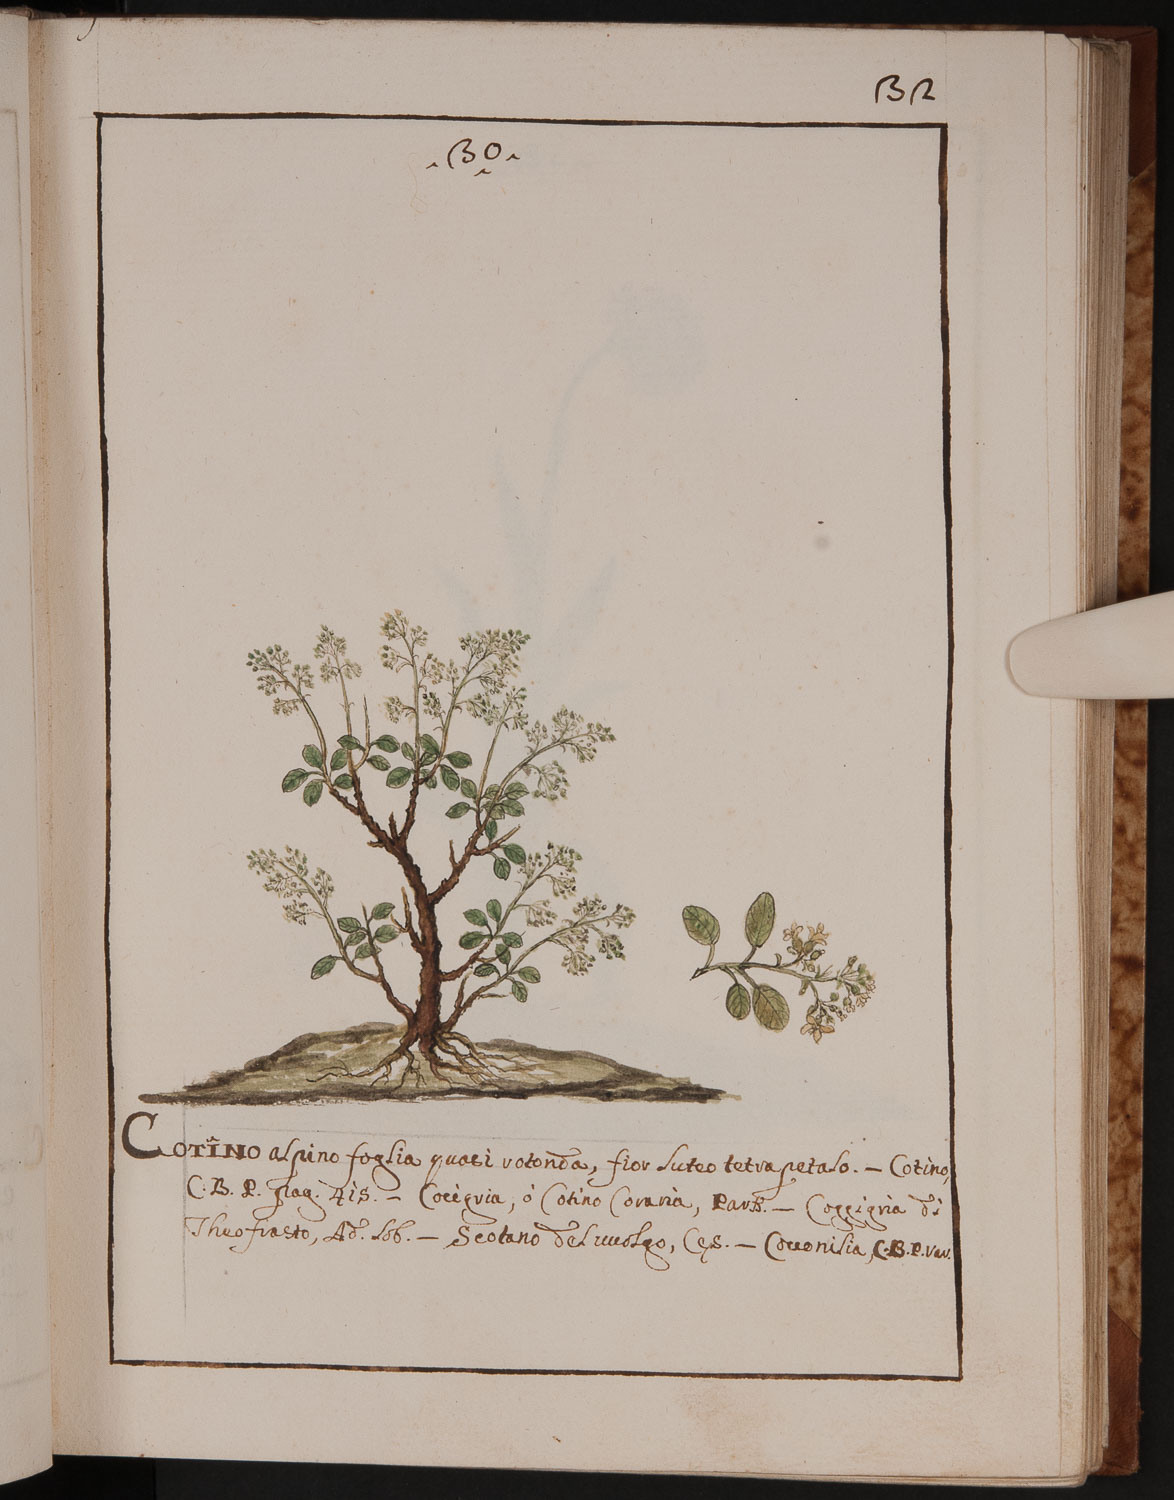 32
.30.
COTINO alpino foglia quasi rotonda, fior luteo tetrapetalo. – Cotino,
C. B. P. pag. 415. – Cocigria, ò Cotino Coraria, Park. – Coggigria di
Theofrasto, Ad. Lob. – Scotano del vuolgo, Ces. – Coconilia, C. B. P. var.